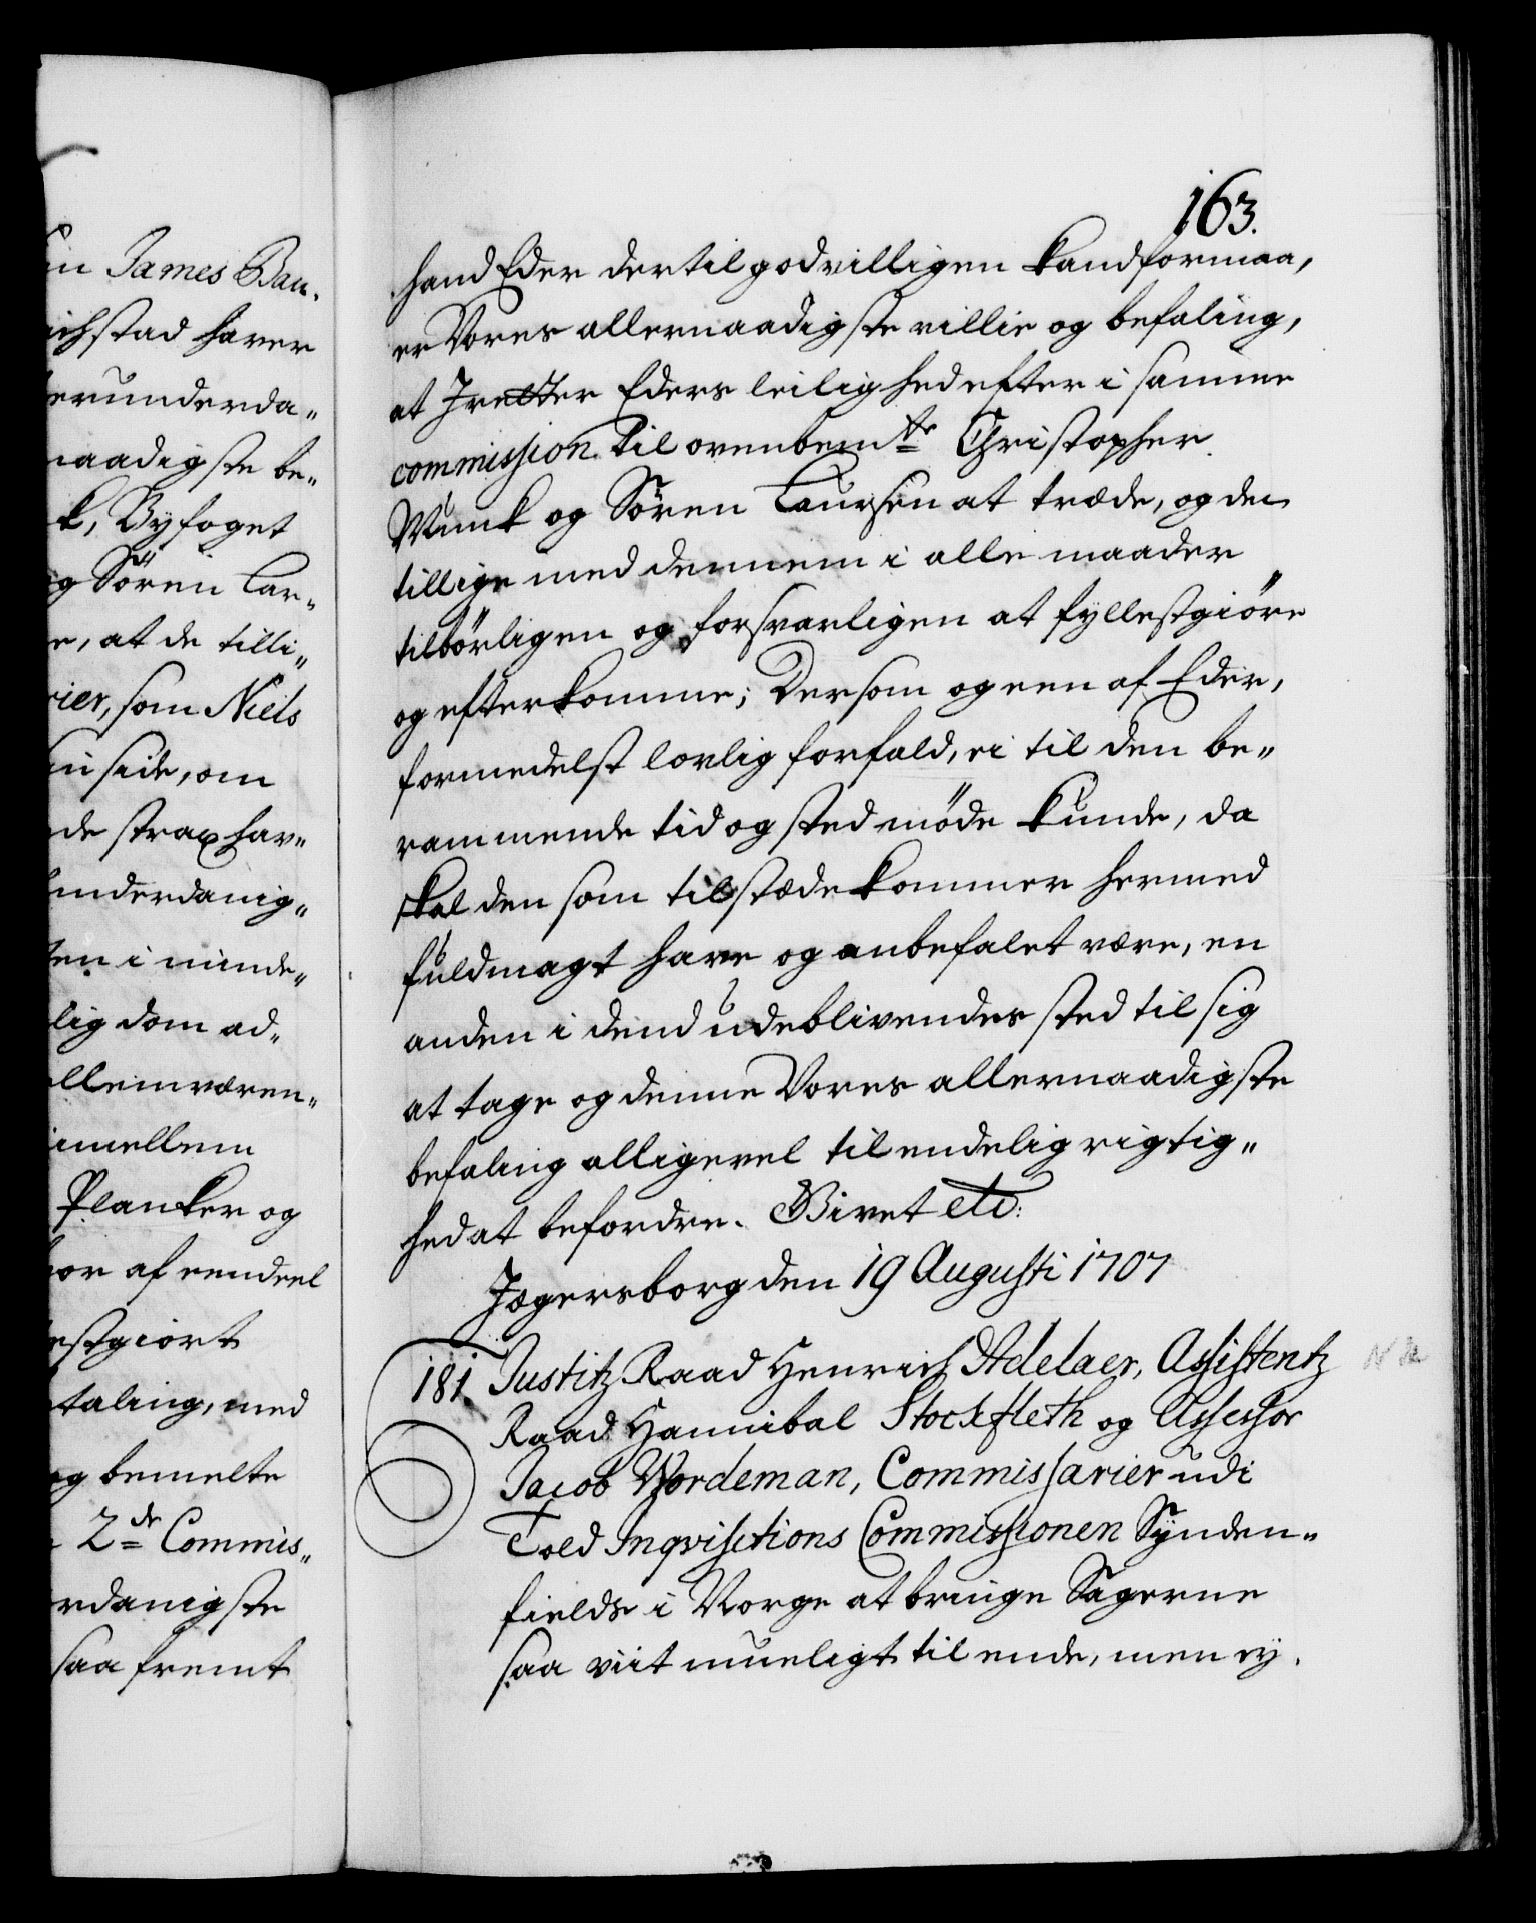 in James Bau„
ichstad haver
erunderda„
naadigste be„
k, Byfoget
og Sören Lar„
e, at de tilli„
rier, som Niels
in side, om
de strax hav„
underdanig„
ten i minde„
lig dom ad„
ellemværen„
imellem
Planker og
for af eendeel
estgiort
taling, med
og bemelte
2de Commis„
rdanigste
saa fremt
163.
hand Eder dertil godvilligen kand formaa,
er Vores allernaadigste villie og befaling,
at I retter Eders leilighed efter i samme
commission til ovenbemte Christopher
Munk og Sören Laursen at træde, og den
tillige med dennem i alle maader
tilbörligen og forsvarligen at fyllestgiöre
og efterkomme; Dersom og een af Eder,
formedelst lovlig forfald, ei til den be„
rammende tid og sted möde kunde, da
skal den som tilstæde kommer hermed
fuldmagt have og anbefalet være, en
anden i dend udeblivendes sted til sig
at tage og denne Vores allernaadigste
befaling alligevel til endelig rigtig„
hed at befordre. Givet etc:
Jægersborg den 19 Augusti 1707
181. Justitz Raad Henrich Adelaer, Assistentz
Raad Hannibal Stockfleth og Assessor
Jacob Wordeman, Commissarier udi
Told Inqvisitions Commissionen Synden„
fields i Norge at bringe Sagerne
saa viit mueligt til ende, men ey